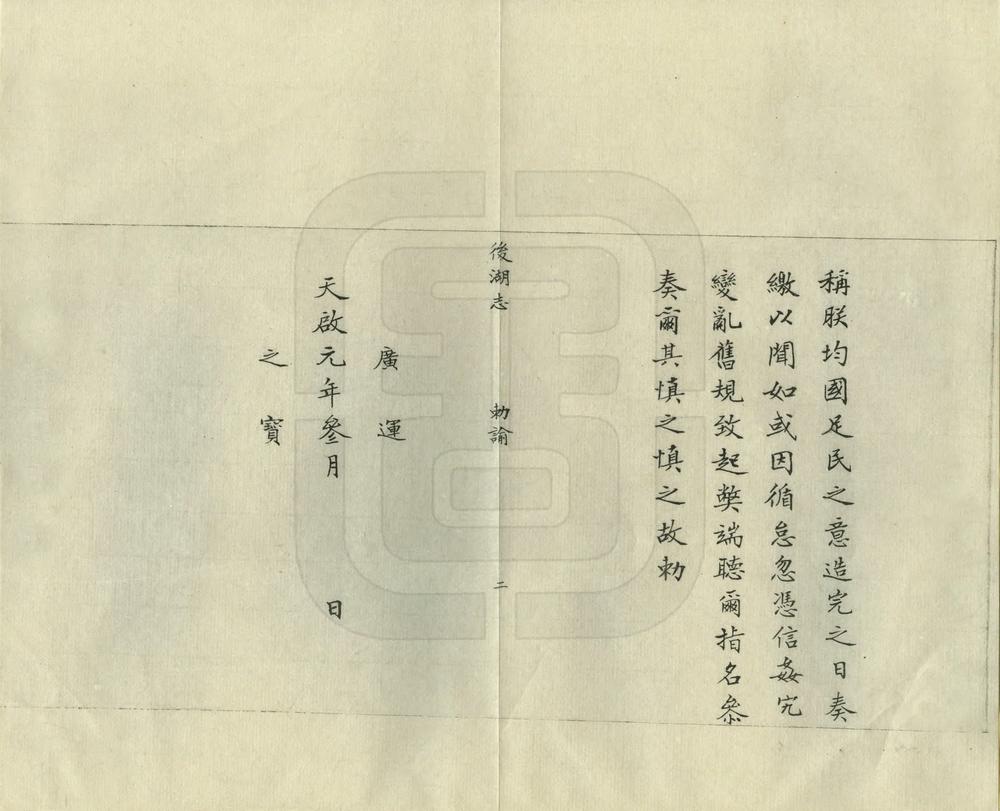 稱朕均國足民之意造完之日奏
繳以聞如或因循怠忽憑信姦宄
變亂舊規致起獘端聽爾指名參
奏爾其慎之慎之故勅
後湖志 勅諭 二
廣運
天啟元年叄月 日
之寶